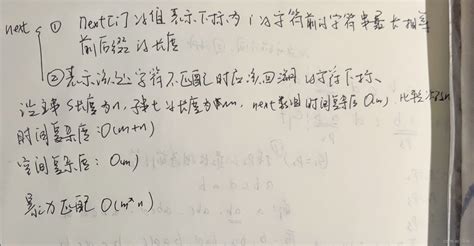 next ① next[i]的值表示下标为i的字符前的字符串最长相等
前后缀的长度
②表示该处字符不匹配时应该回溯到的字符下标
设主串S长度为n,子串t的长度为m,next数组时间复杂度O(m),比较
时间复杂度:O(m+n)
空间复杂度:O(m)
暴力匹配 O(m*n)